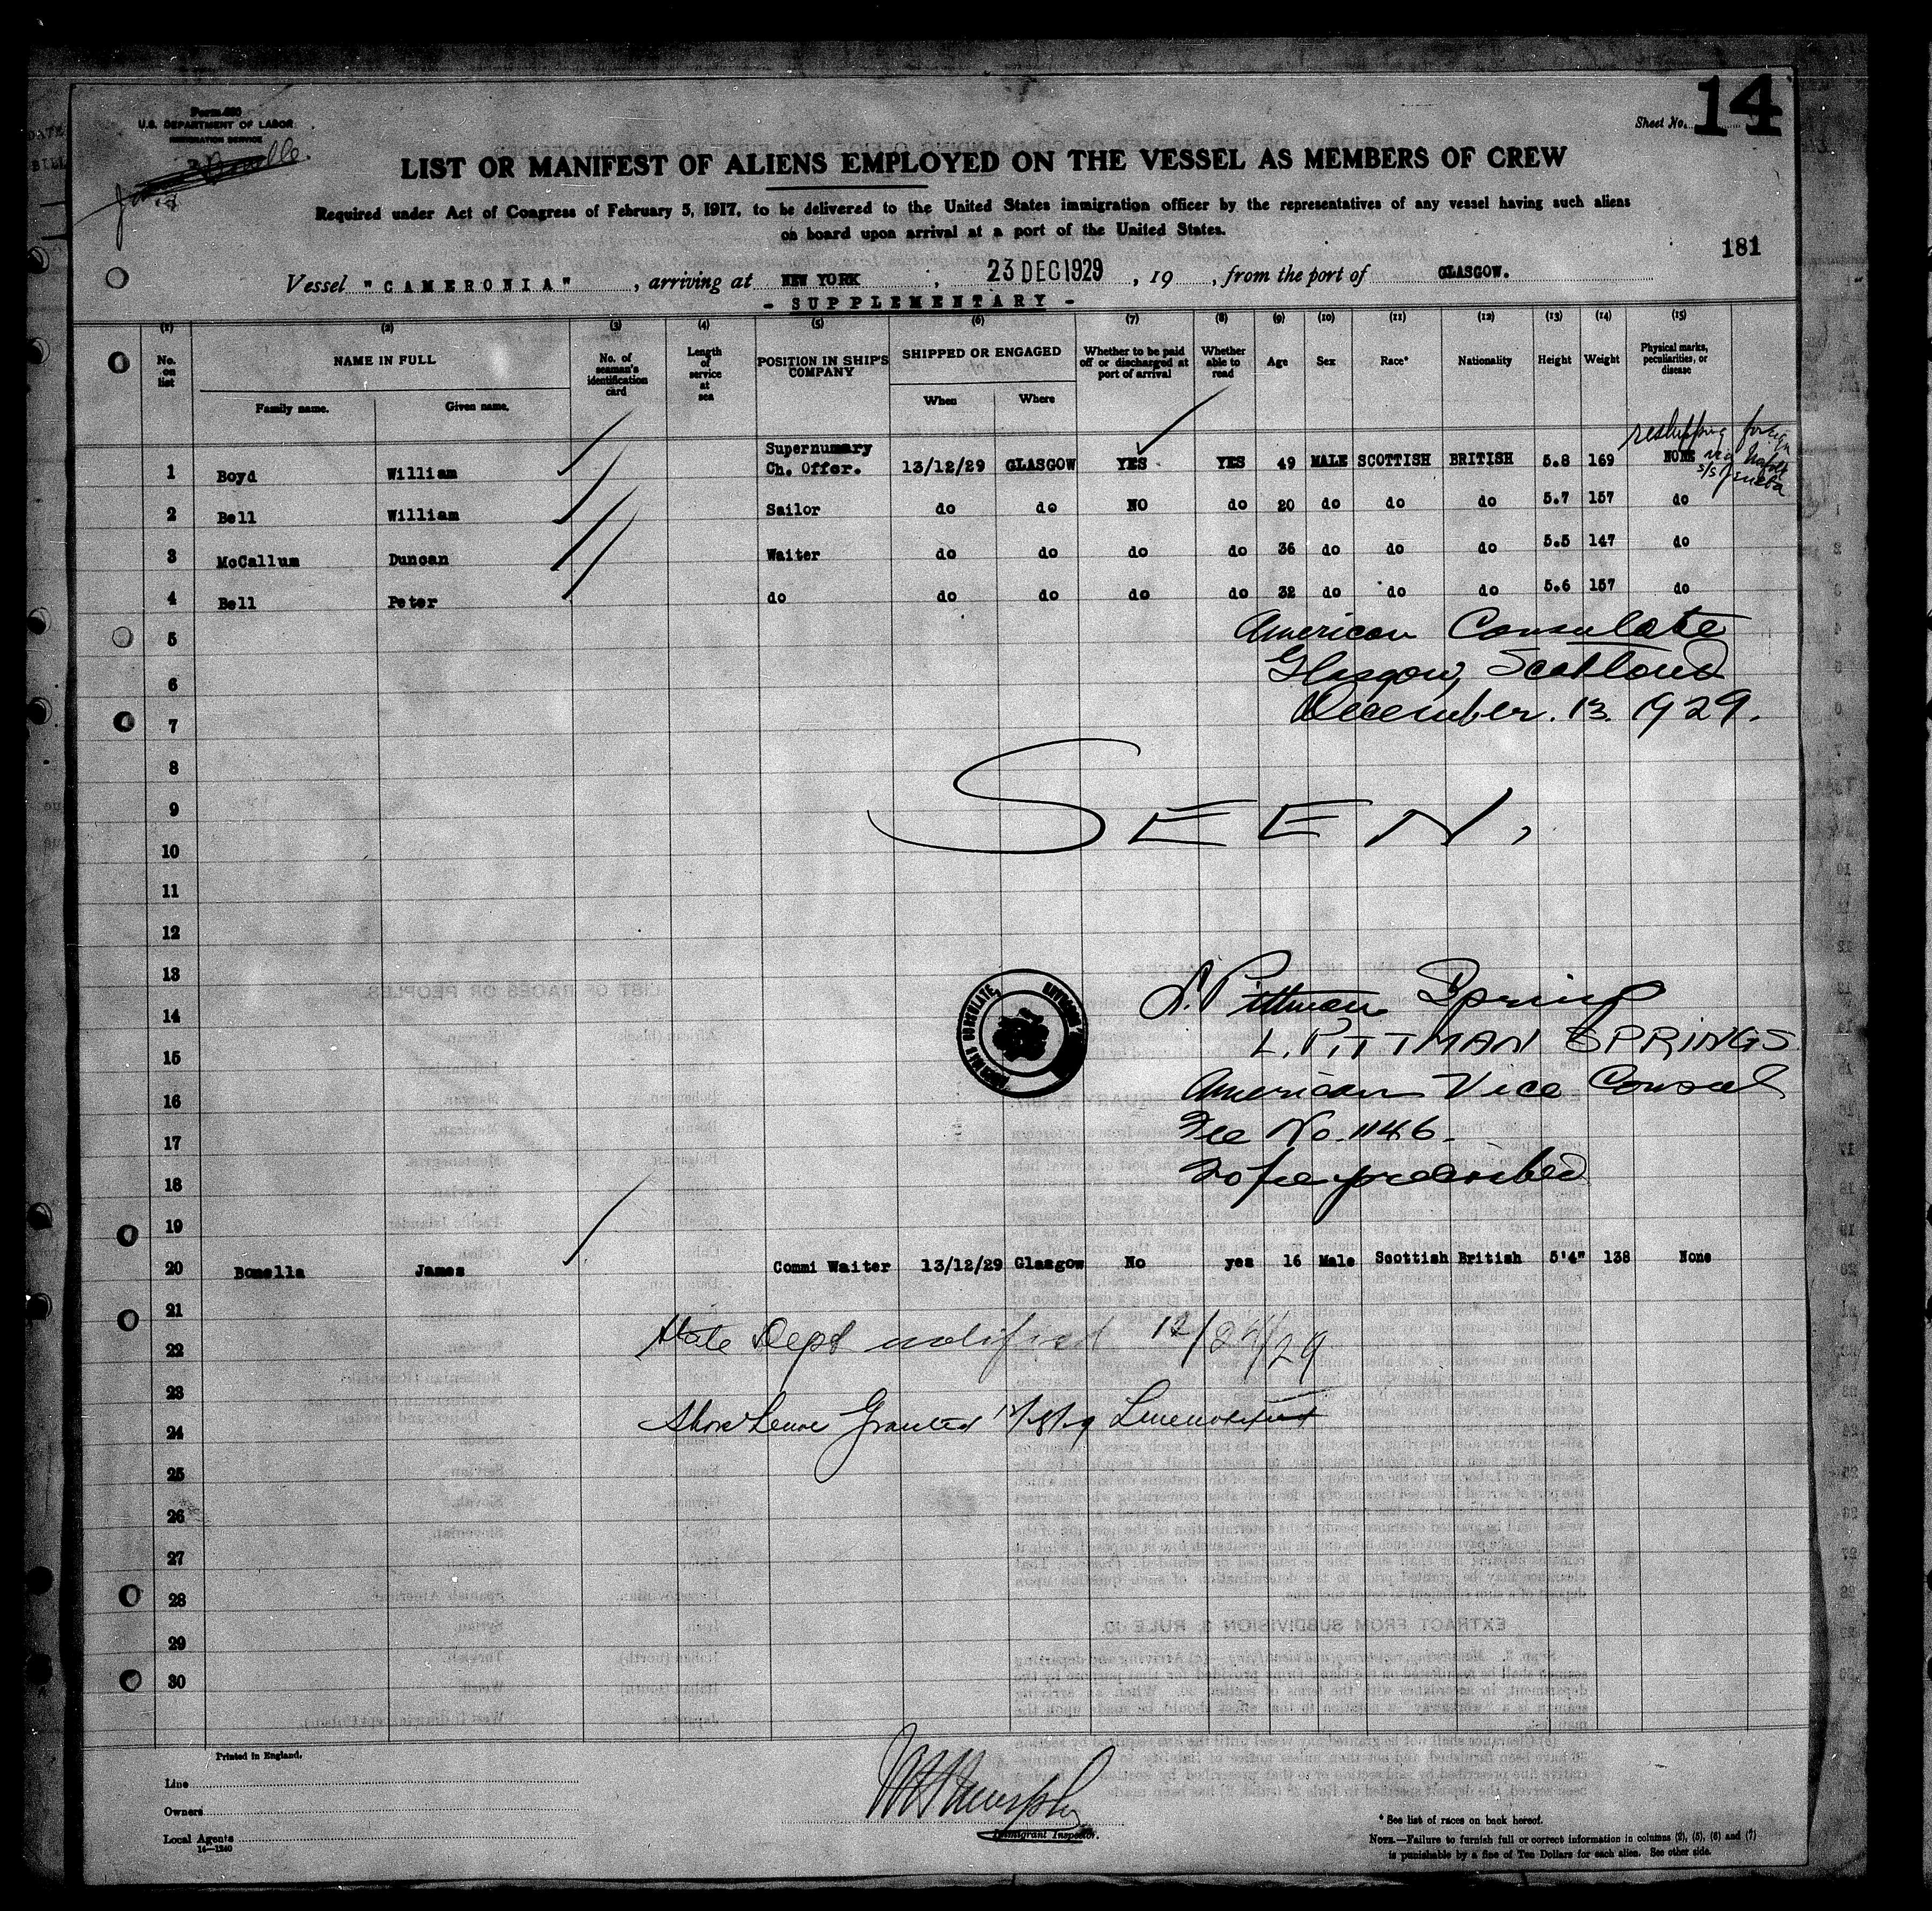 14
Sheet No.
U.S. DEPARTMENT OF LABOR
IMMIGRATION SERVICE
LIST OR MANIFEST OF ALIENS EMPLOYED ON THE VESSEL AS MEMBERS OF CREW
Required under Act of Congress of February 5, 1917, to be delivered to the United States immigration officer by the representatives of any vessel having such aliens
on board upon arrival at a port of the United States.
181
Vessel "CAMERONIA", arriving at NEW YORK, 23 DEC 1929, 19 , from the port of GLASGOW.
- SUPPLEMENTARY -
(1) (2) (3) (4) (5) (6) (7) (8) (9) (10) (11) (12) (13) (14) (15)
No. on list NAME IN FULL No. of seaman's identification card Length of service at sea POSITION IN SHIP'S COMPANY SHIPPED OR ENGAGED Whether to be paid off or discharged at port of arrival Whether able to read Age Sex Race* Nationality Height Weight Physical marks, peculiarities, or disease
Family name. Given name. When Where
reshipping foreign
1 Boyd William Supernumary Ch. Offer. 13/12/29 GLASGOW YES YES 49 MALE SCOTTISH BRITISH 5.8 169 NONE
s/s
2 Bell William Sailor do do NO do 20 do do do 5.7 157 do
3 McCallum Duncan Waiter do do do do 36 do do do 5.5 147 do
4 Bell Peter do do do do do 32 do do do 5.6 157 do
5 American Consulate
6 Glasgow, Scotland
7 December. 13. 1929.
8
9 SEEN.
10
11
12
13
14 L. Pittman Springs
15 L. PITTMAN SPRINGS
16 American Vice Consul
17 Fee No. 1146.
18 No fee prescribed
19
20 Bonella James Commi Waiter 13/12/29 Glasgow No yes 16 Male Scottish British 5'4" 138 None
21
22 State Dept notified 12/24/29
23
24 Shore Leave Granted
25
26
27
28
29
30
Printed in England.
Line
Owners
Local Agents
14—1240
Immigrant Inspector.
* See list of races on back hereof.
NOTE.—Failure to furnish full or correct information in columns (2), (5), (6) and (7)
is punishable by a fine of Ten Dollars for each alien. See other side.